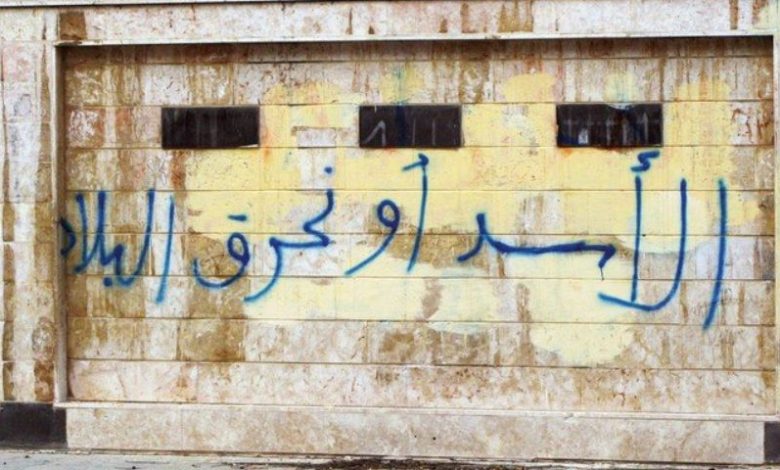 الأسد أو نحرق البلاد